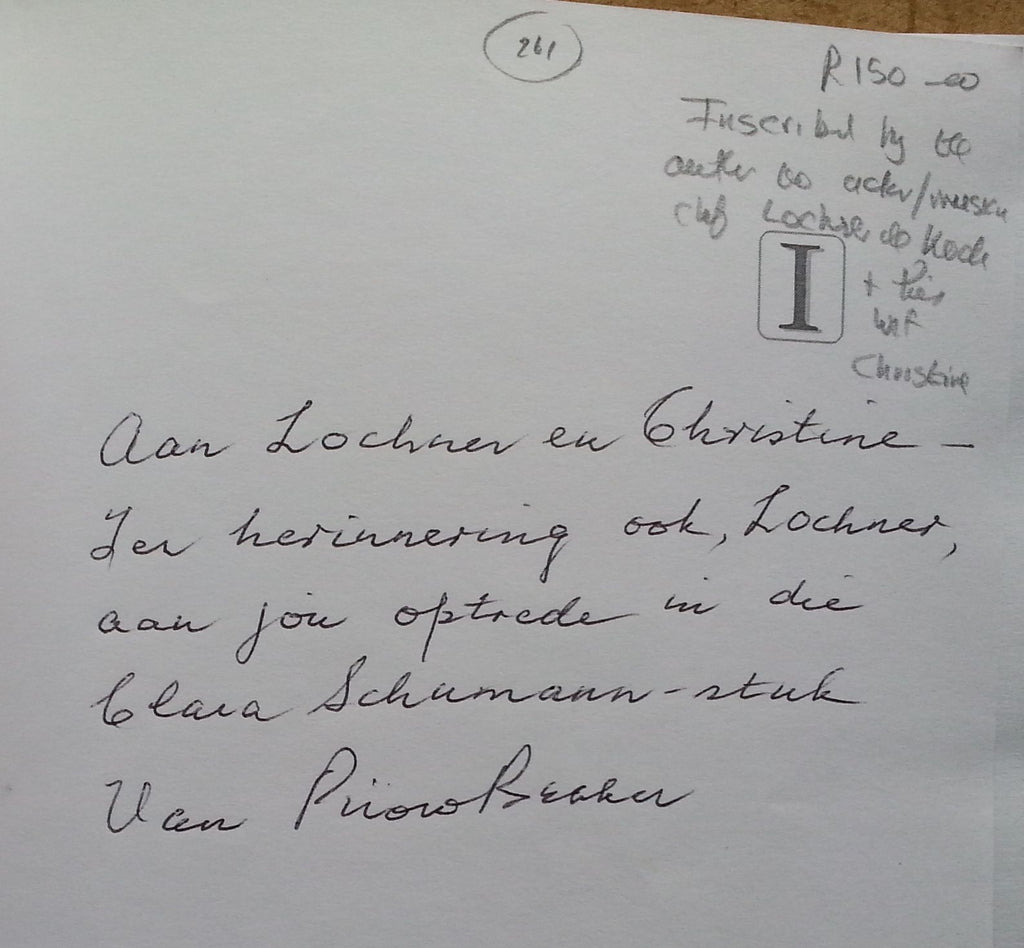 261
R150-00
Inscribed by the
author to actor/musu
chef Lochner de Kock
I
+ his
wife
Christine
Aan Lochner en Christine –
Ter herinnering ook, Lochner,
aan jóu optrede in die
Clara Schumann-stuk
Van Pirow Bekker